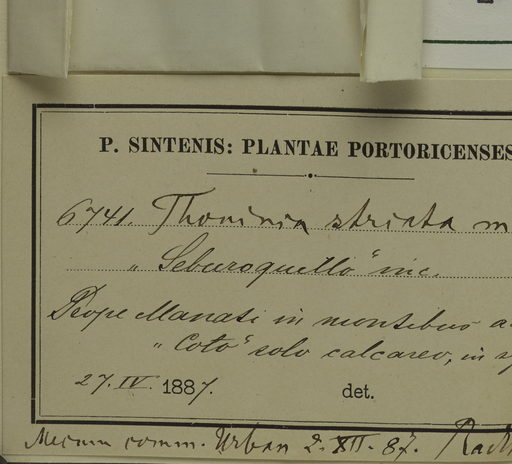 P. SINTENIS: PLANTAE PORTORICENSES
6741. Thouinia striata
„Seburoquillo" inc.
Prope Manati in montibus
„Coto" solo calcareo, in
27. IV. 1887. det.
Mecum comm. Urban 2. XII. 87.